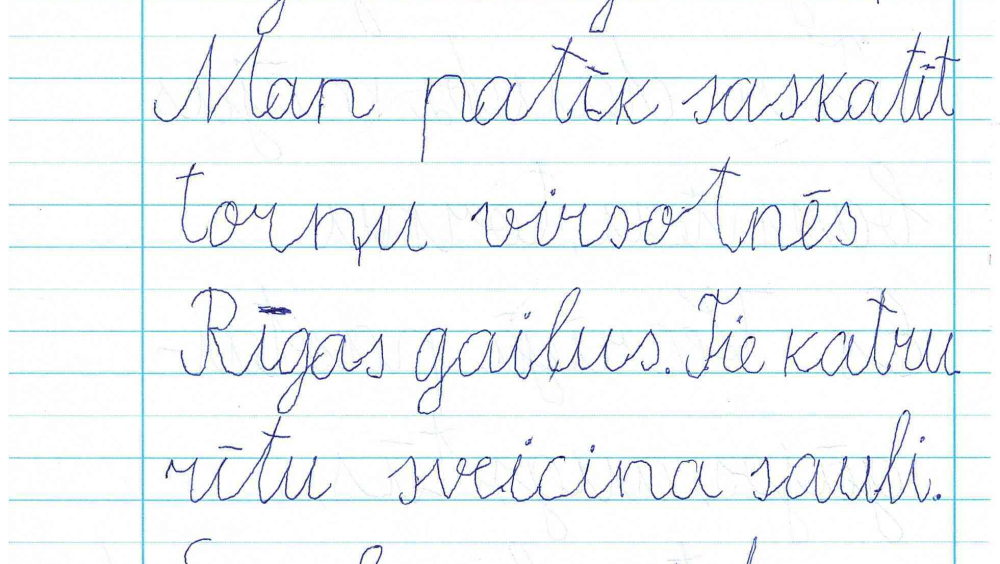 Man patīk saskatīt
torņu virsotnēs
Rīgas gaiļus. Tie katru
rītu sveicina sauli.